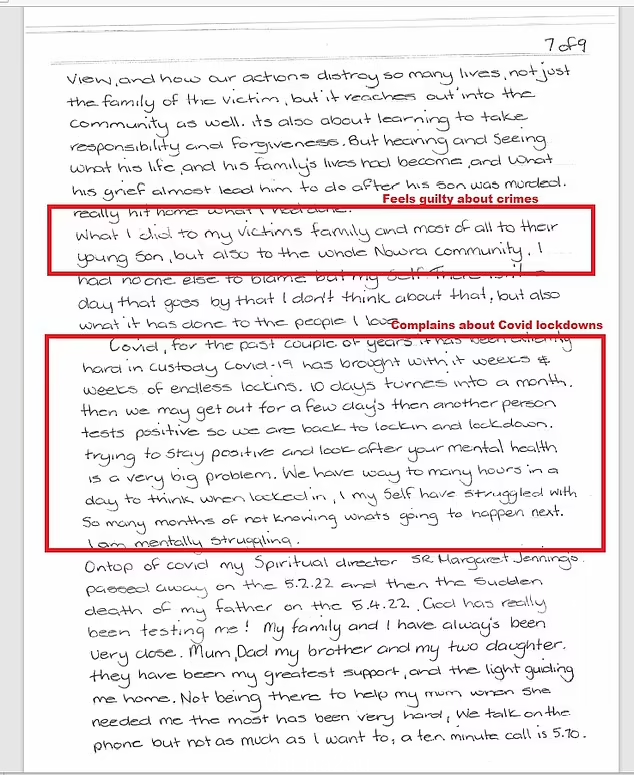 7 of 9
view, and how our actions distroy so many lives, not just
the family of the victim, but it reaches out into the
community as well. its also about learning to take
responsibility and forgiveness. But hearing and Seeing
what his life and his family's lives had become, and what
his grief almost lead him to do after his son was murded.
Feels guilty about crimes
really hit home what I had done.
What I did to my victims family and most of all to their
young Son, but also to the whole Nowra community. I
had no one else to blame but my self. There isn't a
day that goes by that I don't think about that, but also
what it has done to the people I love
Complains about Covid lockdowns
Covid, for the past couple of years it has been
hard in custody Covid-19 has brought with it weeks &
weeks of endless lockins. 10 days turnes into a month.
then we may get out for a few day's then another person
tests positive so we are back to lockin and lockdown.
trying to stay positive and look after your mental health
is a very big problem. We have way to many hours in a
day to think when locked in, I my Self have struggled with
So many months of not knowing whats going to happen next.
I am mentally struggling.
Ontop of covid my Spiritual director SR Margaret Jennings
passed away on the 5.2.22 and then the Sudden
death of my father on the 5.4.22. God has really
been testing me! My family and I have alway's been
very close. Mum, Dad my brother and my two daughter.
they have been my greatest support, and the light guiding
me home. Not being there to help my mum when She
needed me the most has been very hard, We talk on the
phone but not as much as I want to, a ten minute call is 5.70.